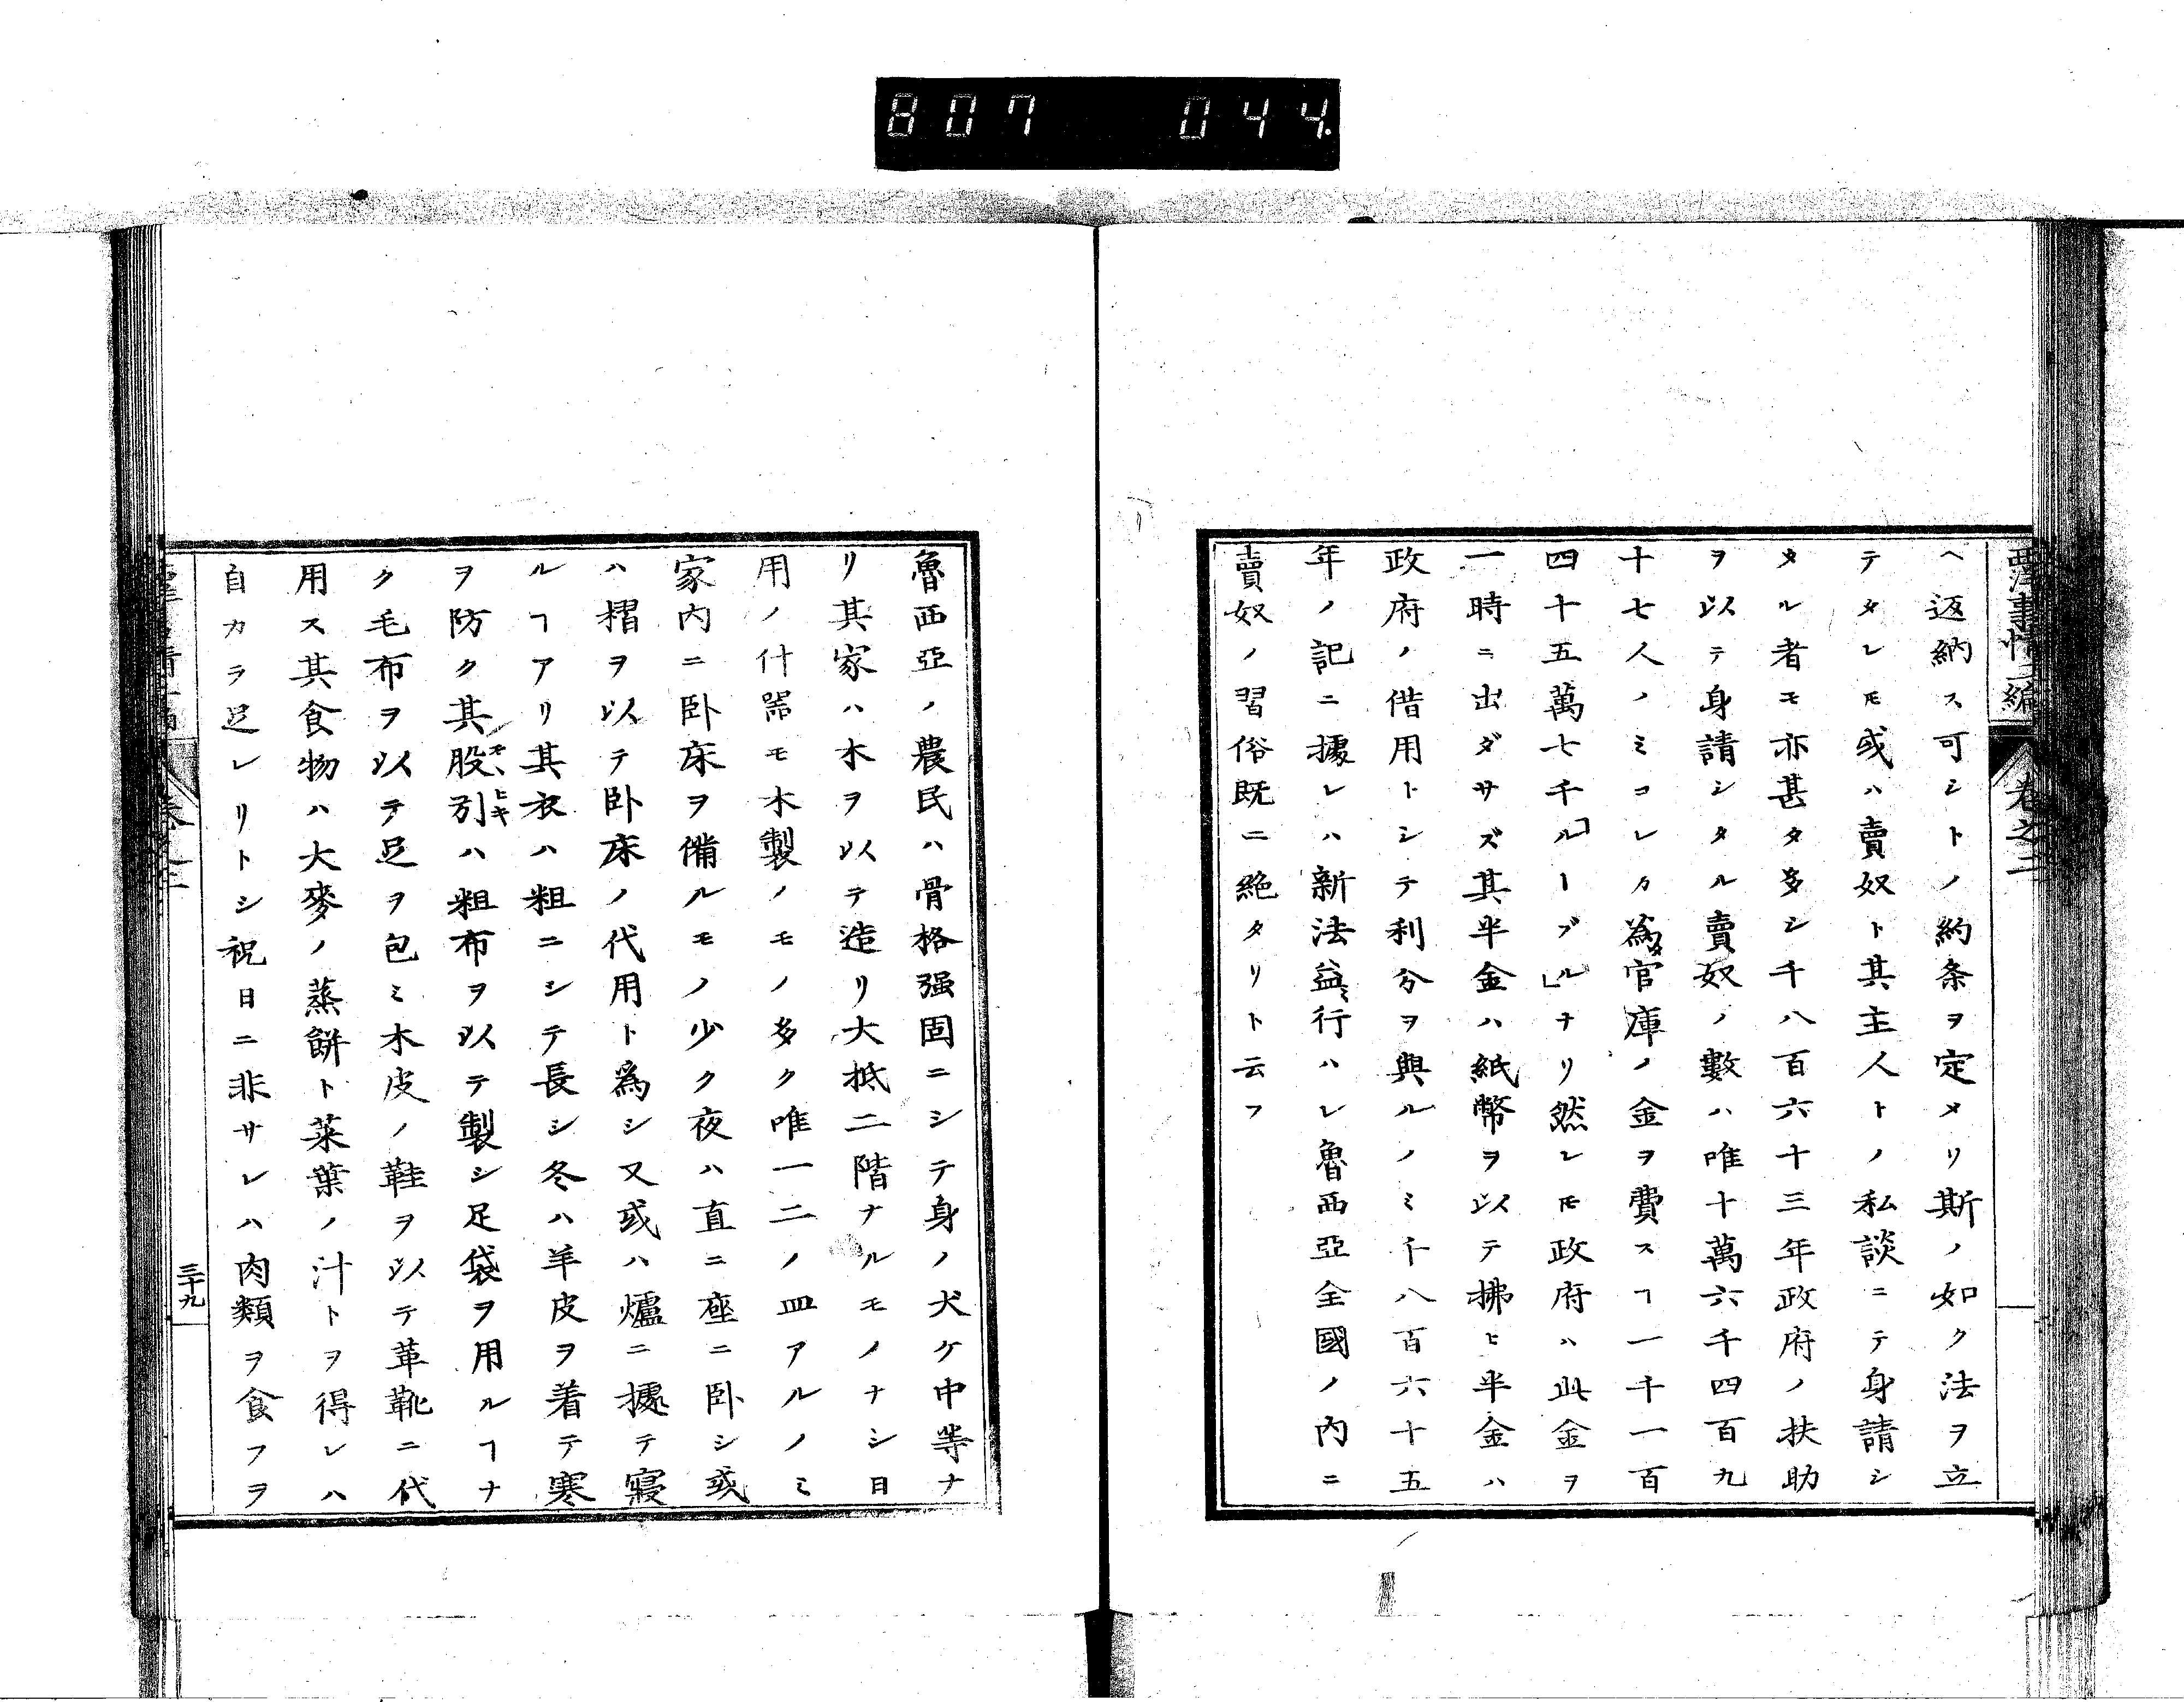 807 044.
西洋事情二編 卷之二
ヘ返納ス可シトノ約条ヲ定メリ斯ノ如ク法ヲ立
テタレ𪜈或ハ賣奴ト其主人トノ私談ニテ身請シ
タル者モ亦甚タ多シ千八百六十三年政府ノ扶助
ヲ以テ身請シタル賣奴ノ數ハ唯十萬六千四百九
十七人ノミコレカ為メ官庫ノ金ヲ費スヿ一千一百
四十五萬七千「ルーブル」ナリ然レ𪜈政府ハ此金ヲ
一時ニ出ダサズ其半金ハ紙幣ヲ以テ拂ヒ半金ハ
政府ノ借用トシテ利分ヲ與ルノミ千八百六十五
年ノ記ニ據レハ新法益ミ行ハレ魯西亞全國ノ内ニ
賣奴ノ習俗既ニ絶タリト云フ
魯西亞ノ農民ハ骨格强固ニシテ身ノ丈ケ中等ナ
リ其家ハ木ヲ以テ造リ大抵二階ナルモノナシ日
用ノ什噐モ木製ノモノ多ク唯一二ノ皿アルノミ
家内ニ卧床ヲ備ルモノ少ク夜ハ直ニ座ニ卧シ或
ハ榴ヲ以テ卧床ノ代用ト為シ又或ハ爐ニ據テ寢
ルヿアリ其衣ハ粗ニシテ長シ冬ハ羊皮ヲ着テ寒
ヲ防ク其股引モヽヒキハ粗布ヲ以テ製シ足袋ヲ用ルヿナ
ク毛布ヲ以テ足ヲ包ミ木皮ノ鞋ヲ以テ革靴ニ代
用ス其食物ハ大麥ノ蒸餅ト菜葉ノ汁トヲ得レハ
自カラ足レリトシ祝日ニ非サレハ肉類ヲ食フヲ
三十九